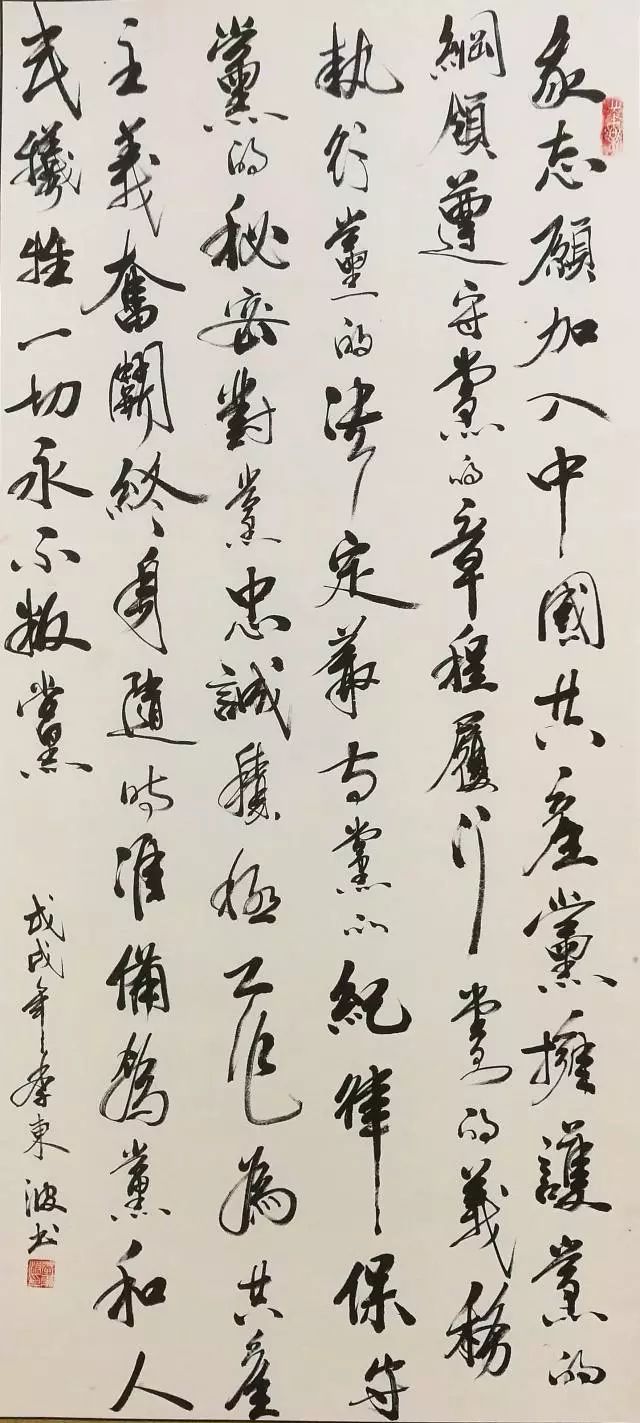 我志願加入中國共產黨擁護黨的
綱領遵守黨的章程履行黨的義務
執行黨的決定嚴守黨的紀律保守
黨的秘密對黨忠誠積極工作為共產
主義奮鬥終身隨時準備為黨和人
民犧牲一切永不叛黨
戊戌年李東波书